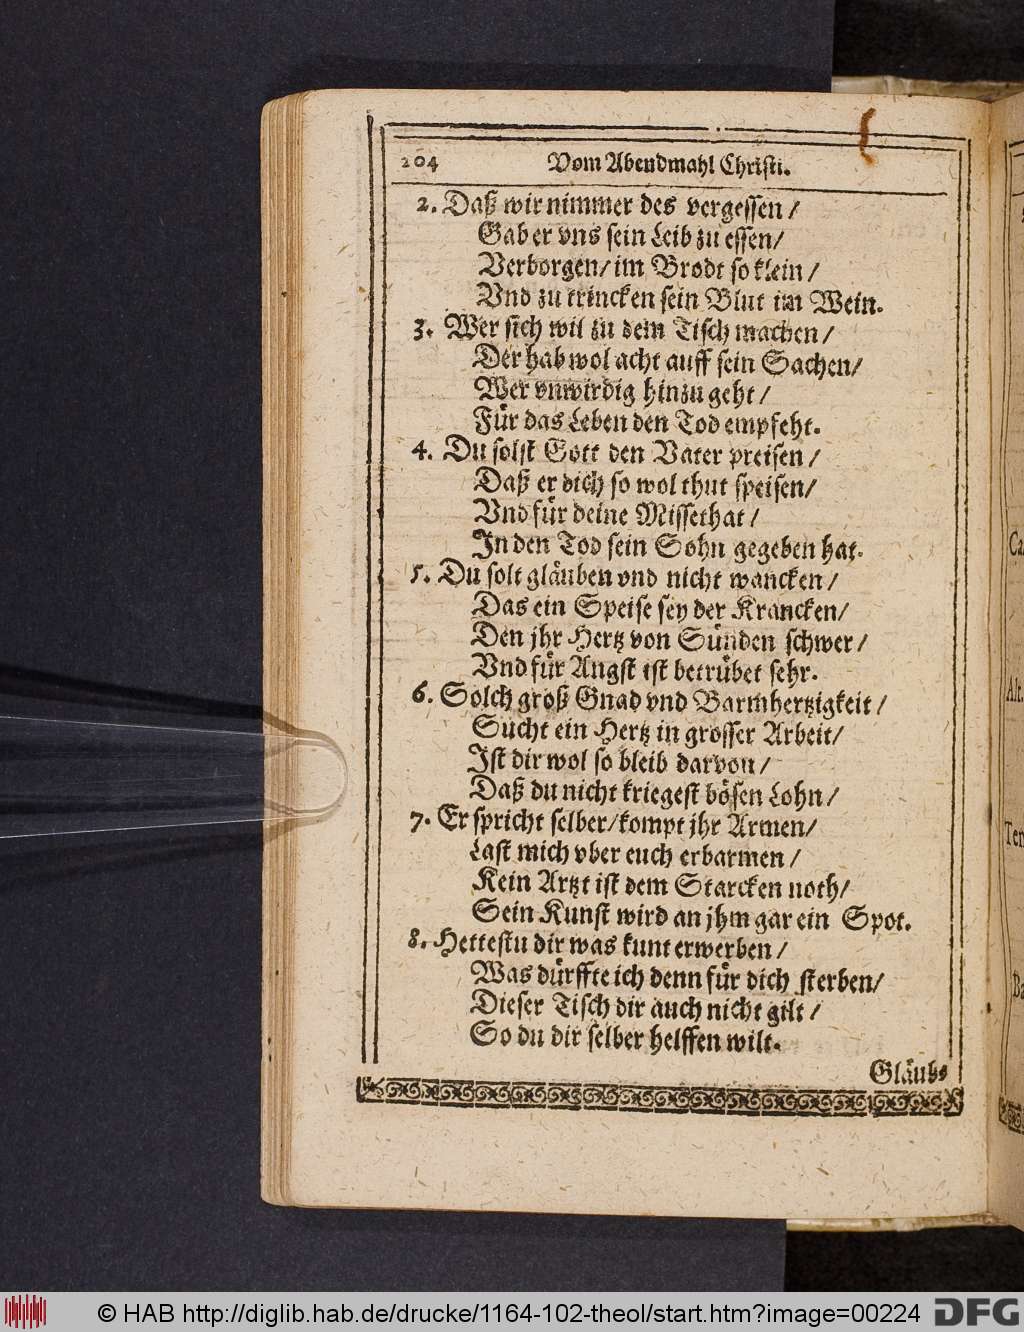 204 Vom Abendmahl Christi.
2. Daß wir nimmer des vergessen /
Gab er vns sein Leib zu essen/
Verborgen/ im Brodt so klein /
Vnd zu trincken sein Blut im Wein.
3. Wer sich wil zu dem Tisch machen /
Der hab wol acht auff sein Sachen/
Wer vnwirdig hinzu geht /
Für das Leben den Tod empfeht.
4. Du solst Gott den Vater preisen /
Daß er dich so wol thut speisen/
Vnd für deine Missethat /
In den Tod sein Sohn gegeben hat.
5. Du solt gläuben vnd nicht wancken /
Das ein Speise sey der Krancken/
Den jhr Hertz von Sünden schwer /
Vnd für Angst ist betrübet sehr.
6. Solch groß Gnad vnd Barmhertzigkeit /
Sucht ein Hertz in grosser Arbeit/
Ist dir wol so bleib darvon /
Daß du nicht kriegest bösen Lohn /
7. Er spricht selber/kompt jhr Armen/
Last mich vber euch erbarmen /
Kein Artzt ist dem Starcken noth/
Sein Kunst wird an jhm gar ein Spot.
8. Hettestu dir was kunt erwerben /
Was dürffte ich denn für dich sterben/
Dieser Tisch dir auch nicht gilt /
So du dir selber helffen wilt.
Gläub⸗
Alt.
© HAB http://diglib.hab.de/drucke/1164-102-theol/start.htm?image=00224
DFG